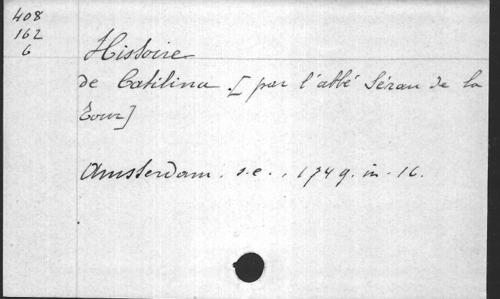 408
162
6
Histoire
de Catilina. [par l'abbé Séran de la
Tour]
Amsterdam. s.e., 1749. in-16.